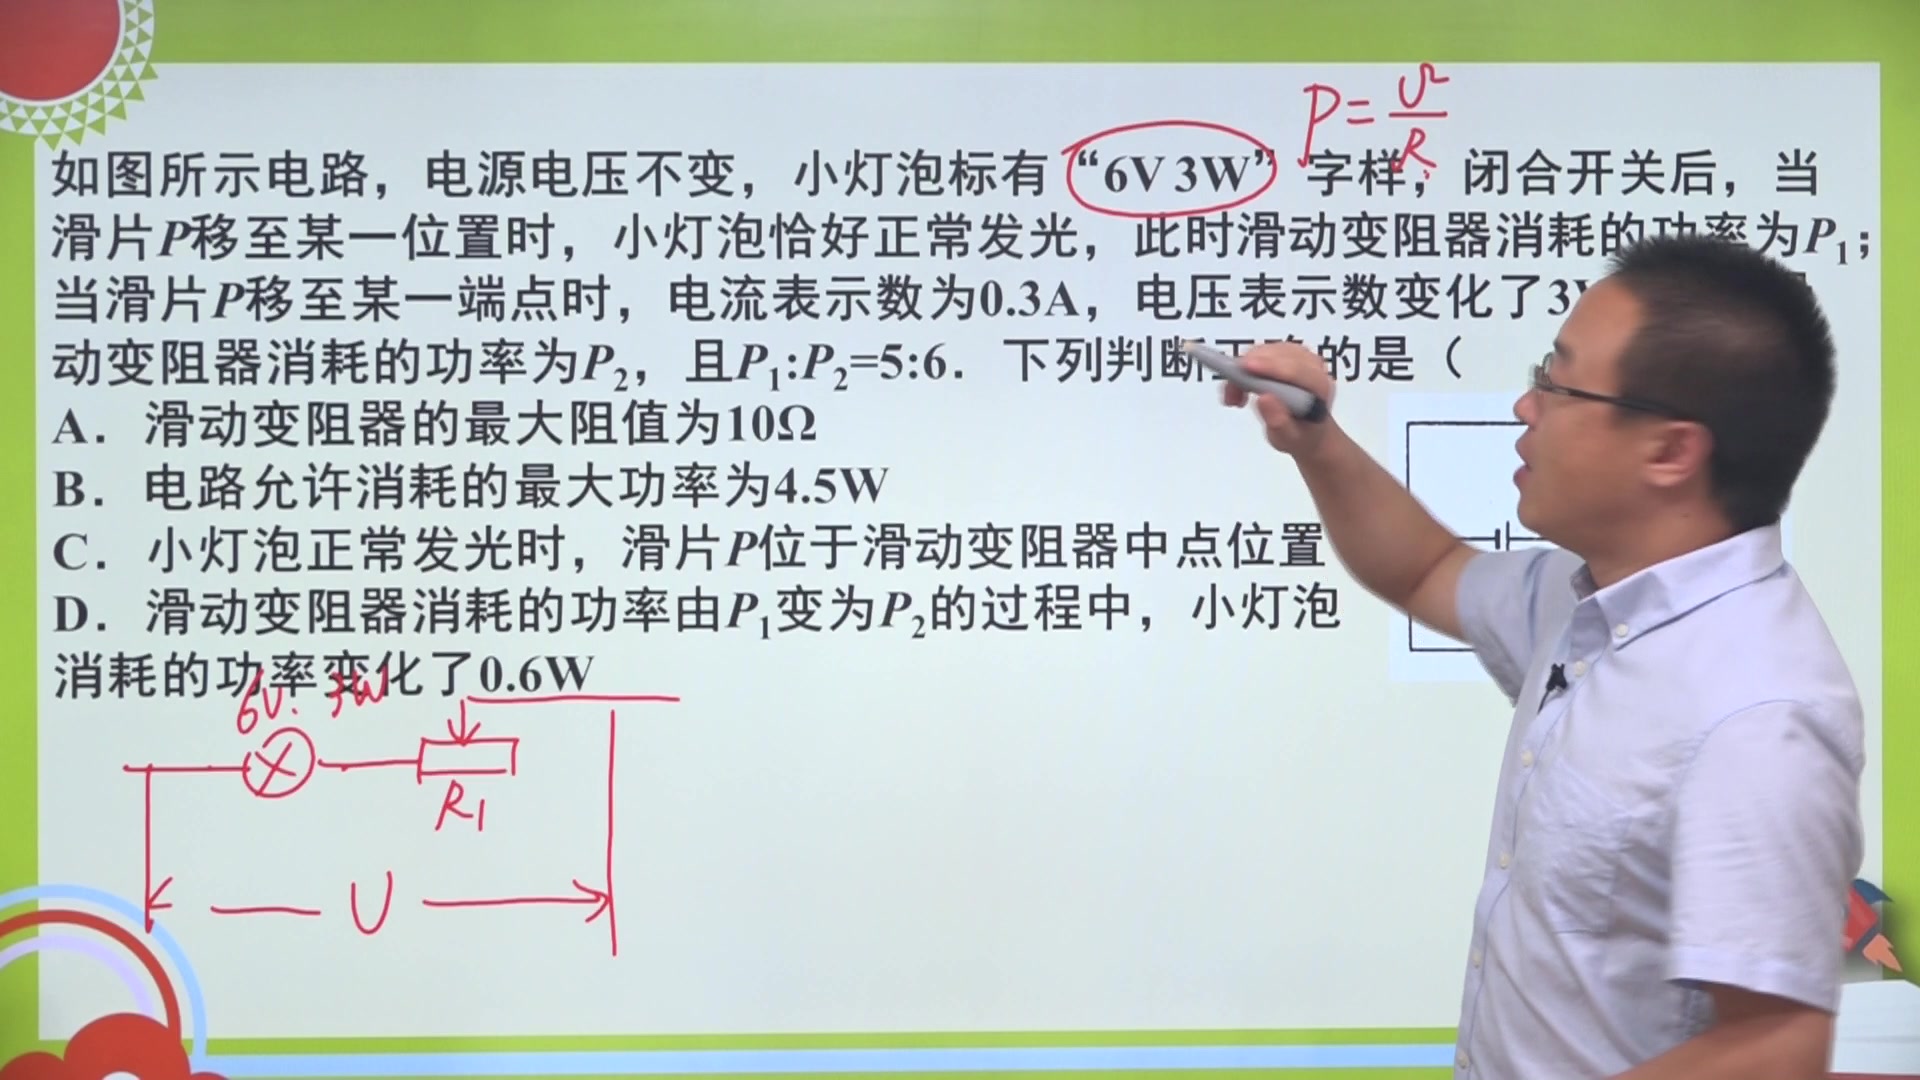 P=U²/R
如图所示电路，电源电压不变，小灯泡标有“6V 3W”字样，闭合开关后，当
滑片P移至某一位置时，小灯泡恰好正常发光，此时滑动变阻器消耗的功率为P₁；
当滑片P移至某一端点时，电流表示数为0.3A，电压表示数变化了3V
动变阻器消耗的功率为P₂，且P₁:P₂=5:6．下列判断正确的是（
A．滑动变阻器的最大阻值为10Ω
B．电路允许消耗的最大功率为4.5W
C．小灯泡正常发光时，滑片P位于滑动变阻器中点位置
D．滑动变阻器消耗的功率由P₁变为P₂的过程中，小灯泡
消耗的功率变化了0.6W
6V. 3W
R1
U